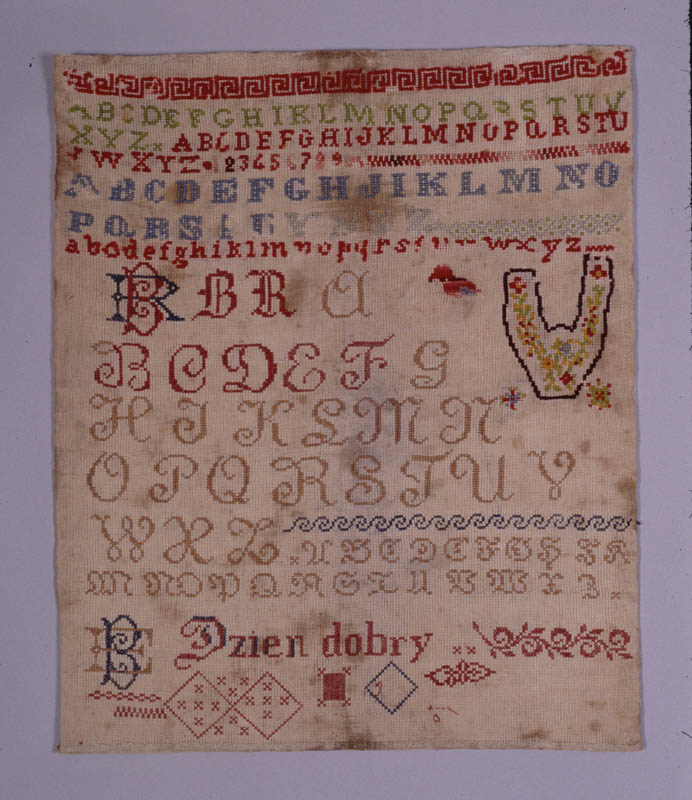 ABCDEFGHIKLMNOPQRSTUV
XYZ× ABCDEFGHIJKLMNOPQRSTU
VWXYZ. 23456789
ABCDEFGHJIKLMNO
PQRS
abcdefghiklmnopqrstuvwxyz
BR B R A
BCDEFG
HJKLMN
OPQRSTUV
WXZ
ABCDEFGHIK
MNOPQRSTUVWXZ.
Dzien dobry